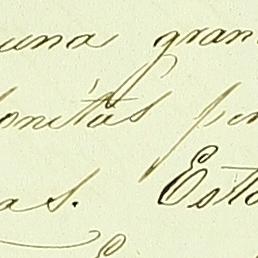 una gran
onitas per
as. Esto